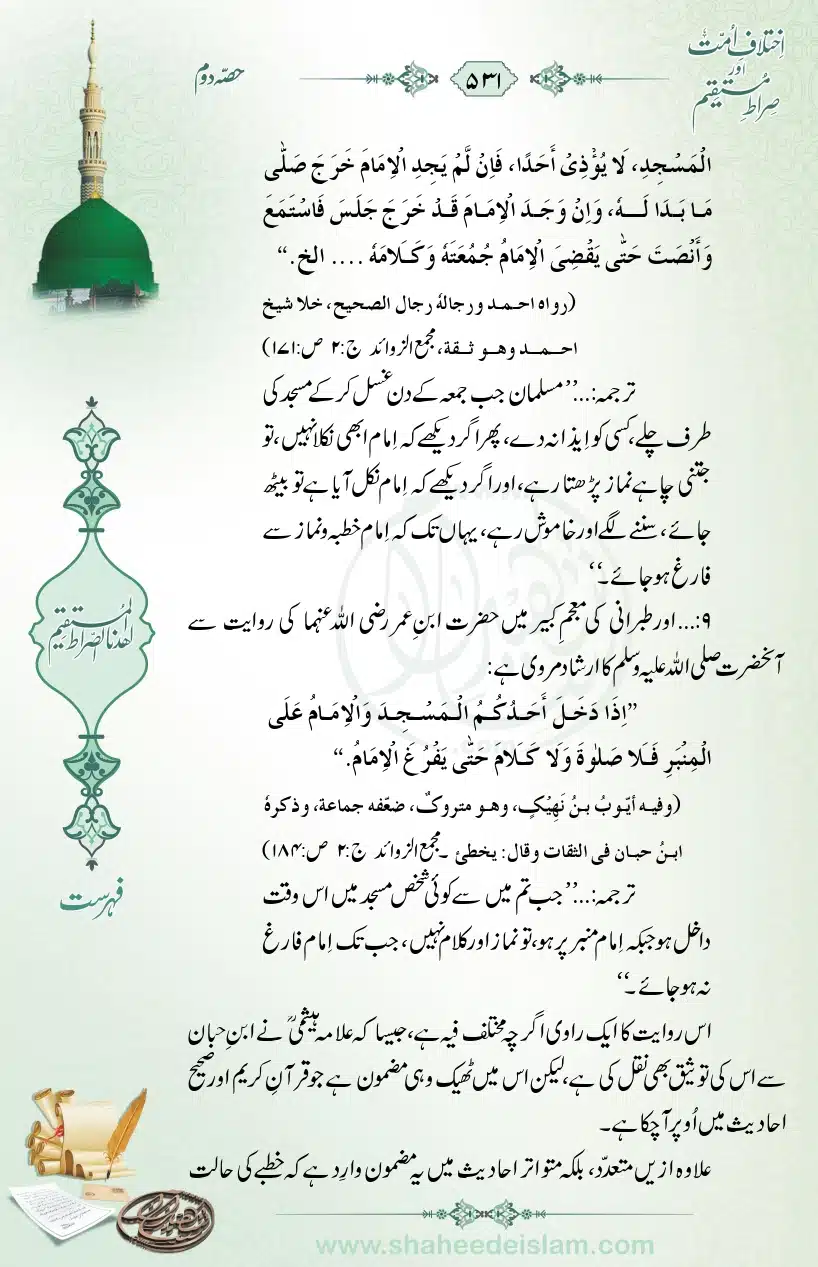 اِختلافِ اُمّت
اور
صِراطِ مُستقیم
۵۳۱
حصّہ دوم
الْمَسْجِدِ، لَا يُؤْذِیْ أَحَدًا، فَاِنْ لَّمْ يَجِدِ الْاِمَامَ خَرَجَ صَلّٰى
مَا بَدَا لَـهٗ، وَاِنْ وَجَدَ الْاِمَامَ قَدْ خَرَجَ جَلَسَ فَاسْتَمَعَ
وَأَنْصَتَ حَتّٰى يَقْضِیَ الْاِمَامُ جُمُعَتَهٗ وَكَـلَامَهٗ .... الخ.“
(رواہ احمد ورجالهٗ رجال الصحیح، خلا شیخ
احمد وهو ثقة، مجمع الزوائد ج:۲ ص:۱۷۱)
ترجمہ:...’’مسلمان جب جمعہ کے دن غسل کرکے مسجد کی
طرف چلے، کسی کو اِیذا نہ دے، پھر اگر دیکھے کہ اِمام ابھی نکلا نہیں، تو
جتنی چاہے نماز پڑھتا رہے، اور اگر دیکھے کہ اِمام نکل آیا ہے تو بیٹھ
جائے، سننے لگے اور خاموش رہے، یہاں تک کہ اِمام خطبہ و نماز سے
فارغ ہوجائے۔‘‘
۹:...اور طبرانی کی معجمِ کبیر میں حضرت ابنِ عمر رضی اللہ عنہما کی روایت سے
آنحضرت صلی اللہ علیہ وسلم کا ارشاد مروی ہے:
”اِذَا دَخَـلَ أَحَدُكُـمُ الْـمَسْـجِـدَ وَالْاِمَامُ عَلَى
الْمِنْبَرِ فَـلَا صَلٰوةَ وَلَا كَـلَامَ حَتّٰى يَفْرُغَ الْاِمَامُ.“
(وفیہ أیّوبُ بنُ نَهِیْكٍ، وهو متروكٌ، ضعّفه جماعة، وذكرهٗ
ابنُ حبان فی الثقات وقال: یخطئ ۔ مجمع الزوائد ج:۲ ص:۱۸۴)
ترجمہ:...’’جب تم میں سے کوئی شخص مسجد میں اس وقت
داخل ہو جبکہ اِمام منبر پر ہو، تو نماز اور کلام نہیں، جب تک اِمام فارغ
نہ ہوجائے۔‘‘
اس روایت کا ایک راوی اگرچہ مختلف فیہ ہے، جیسا کہ علامہ ہیثمیؒ نے ابنِ حبان
سے اس کی توثیق بھی نقل کی ہے، لیکن اس میں ٹھیک وہی مضمون ہے جو قرآنِ کریم اور صحیح
احادیث میں اُوپر آچکا ہے۔
علاوہ ازیں متعدّد، بلکہ متواتر احادیث میں یہ مضمون وارِد ہے کہ خطبے کی حالت
اھدنا الصّراط المُستقیم
فہرست
www.shaheedeislam.com